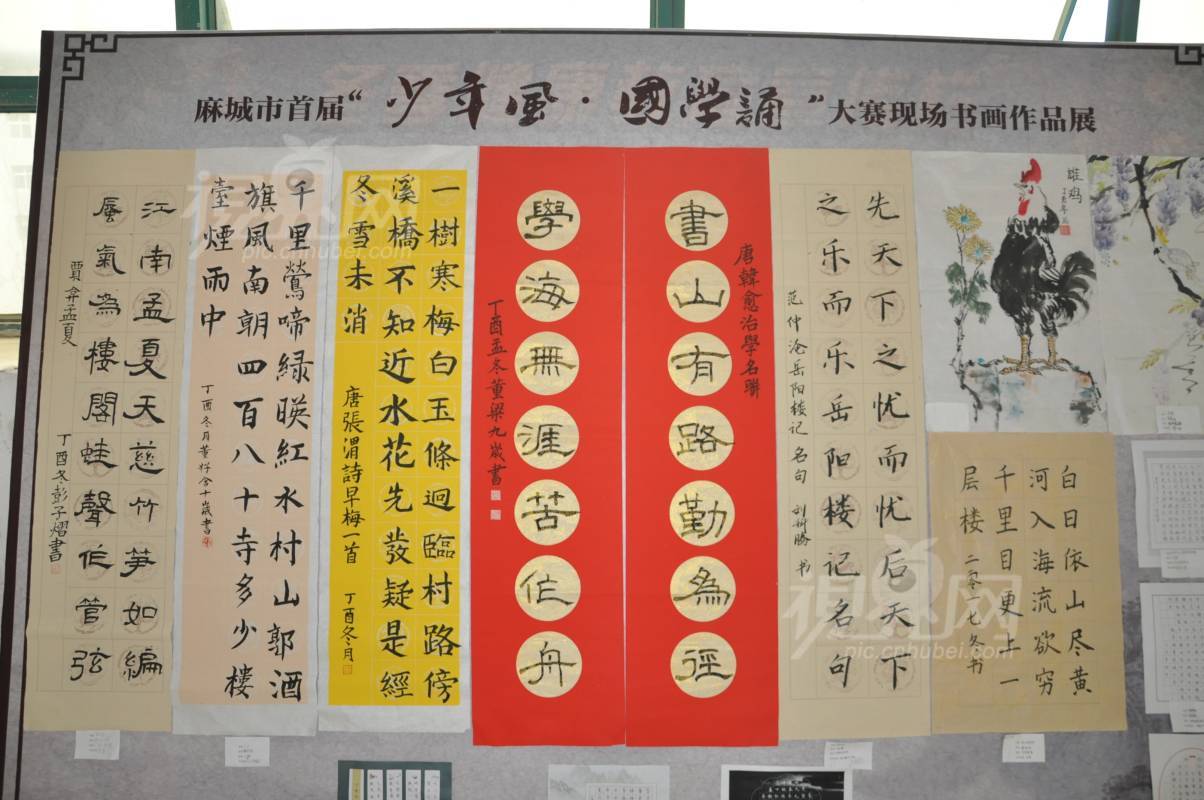 麻城市首届“少年風·國學誦”大赛现场书画作品展
雄鸡
白日依山尽黄
河入海流欲穷
千里目更上一
层楼 二零一七冬书
先天下之忧而忧后天下
之乐而乐岳阳楼记名句
范仲淹岳阳楼记名句
唐韓愈治學名聯
書山有路勤為徑
學海無涯苦作舟
丁酉孟冬董梁九歲書
一樹寒梅白玉條迥臨村路傍
溪橋不知近水花先發疑是經
冬雪未消
唐張渭詩早梅一首 丁酉冬月
千里鶯啼緑暎紅水村山郭酒
旗風南朝四百八十寺多少樓
臺煙雨中
丁酉冬月董梓含十歲書
江南孟夏天慈竹笋如編
蜃氣為樓閣蛙聲作管弦
賈弇孟夏 丁酉冬彭子熠書
视界网
pic.cnhubei.com